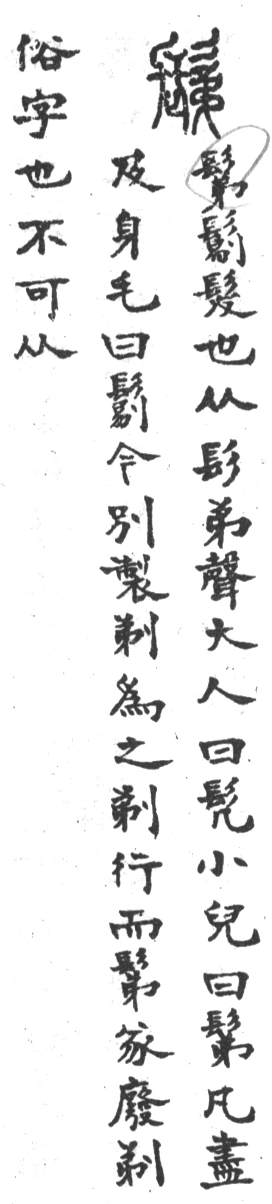 鬀鬄髮也从髟弟聲大人曰髡小兒曰鬀凡盡
及身毛曰鬄今別製剃為之剃行而鬀㒸廢剃
俗字也不可从